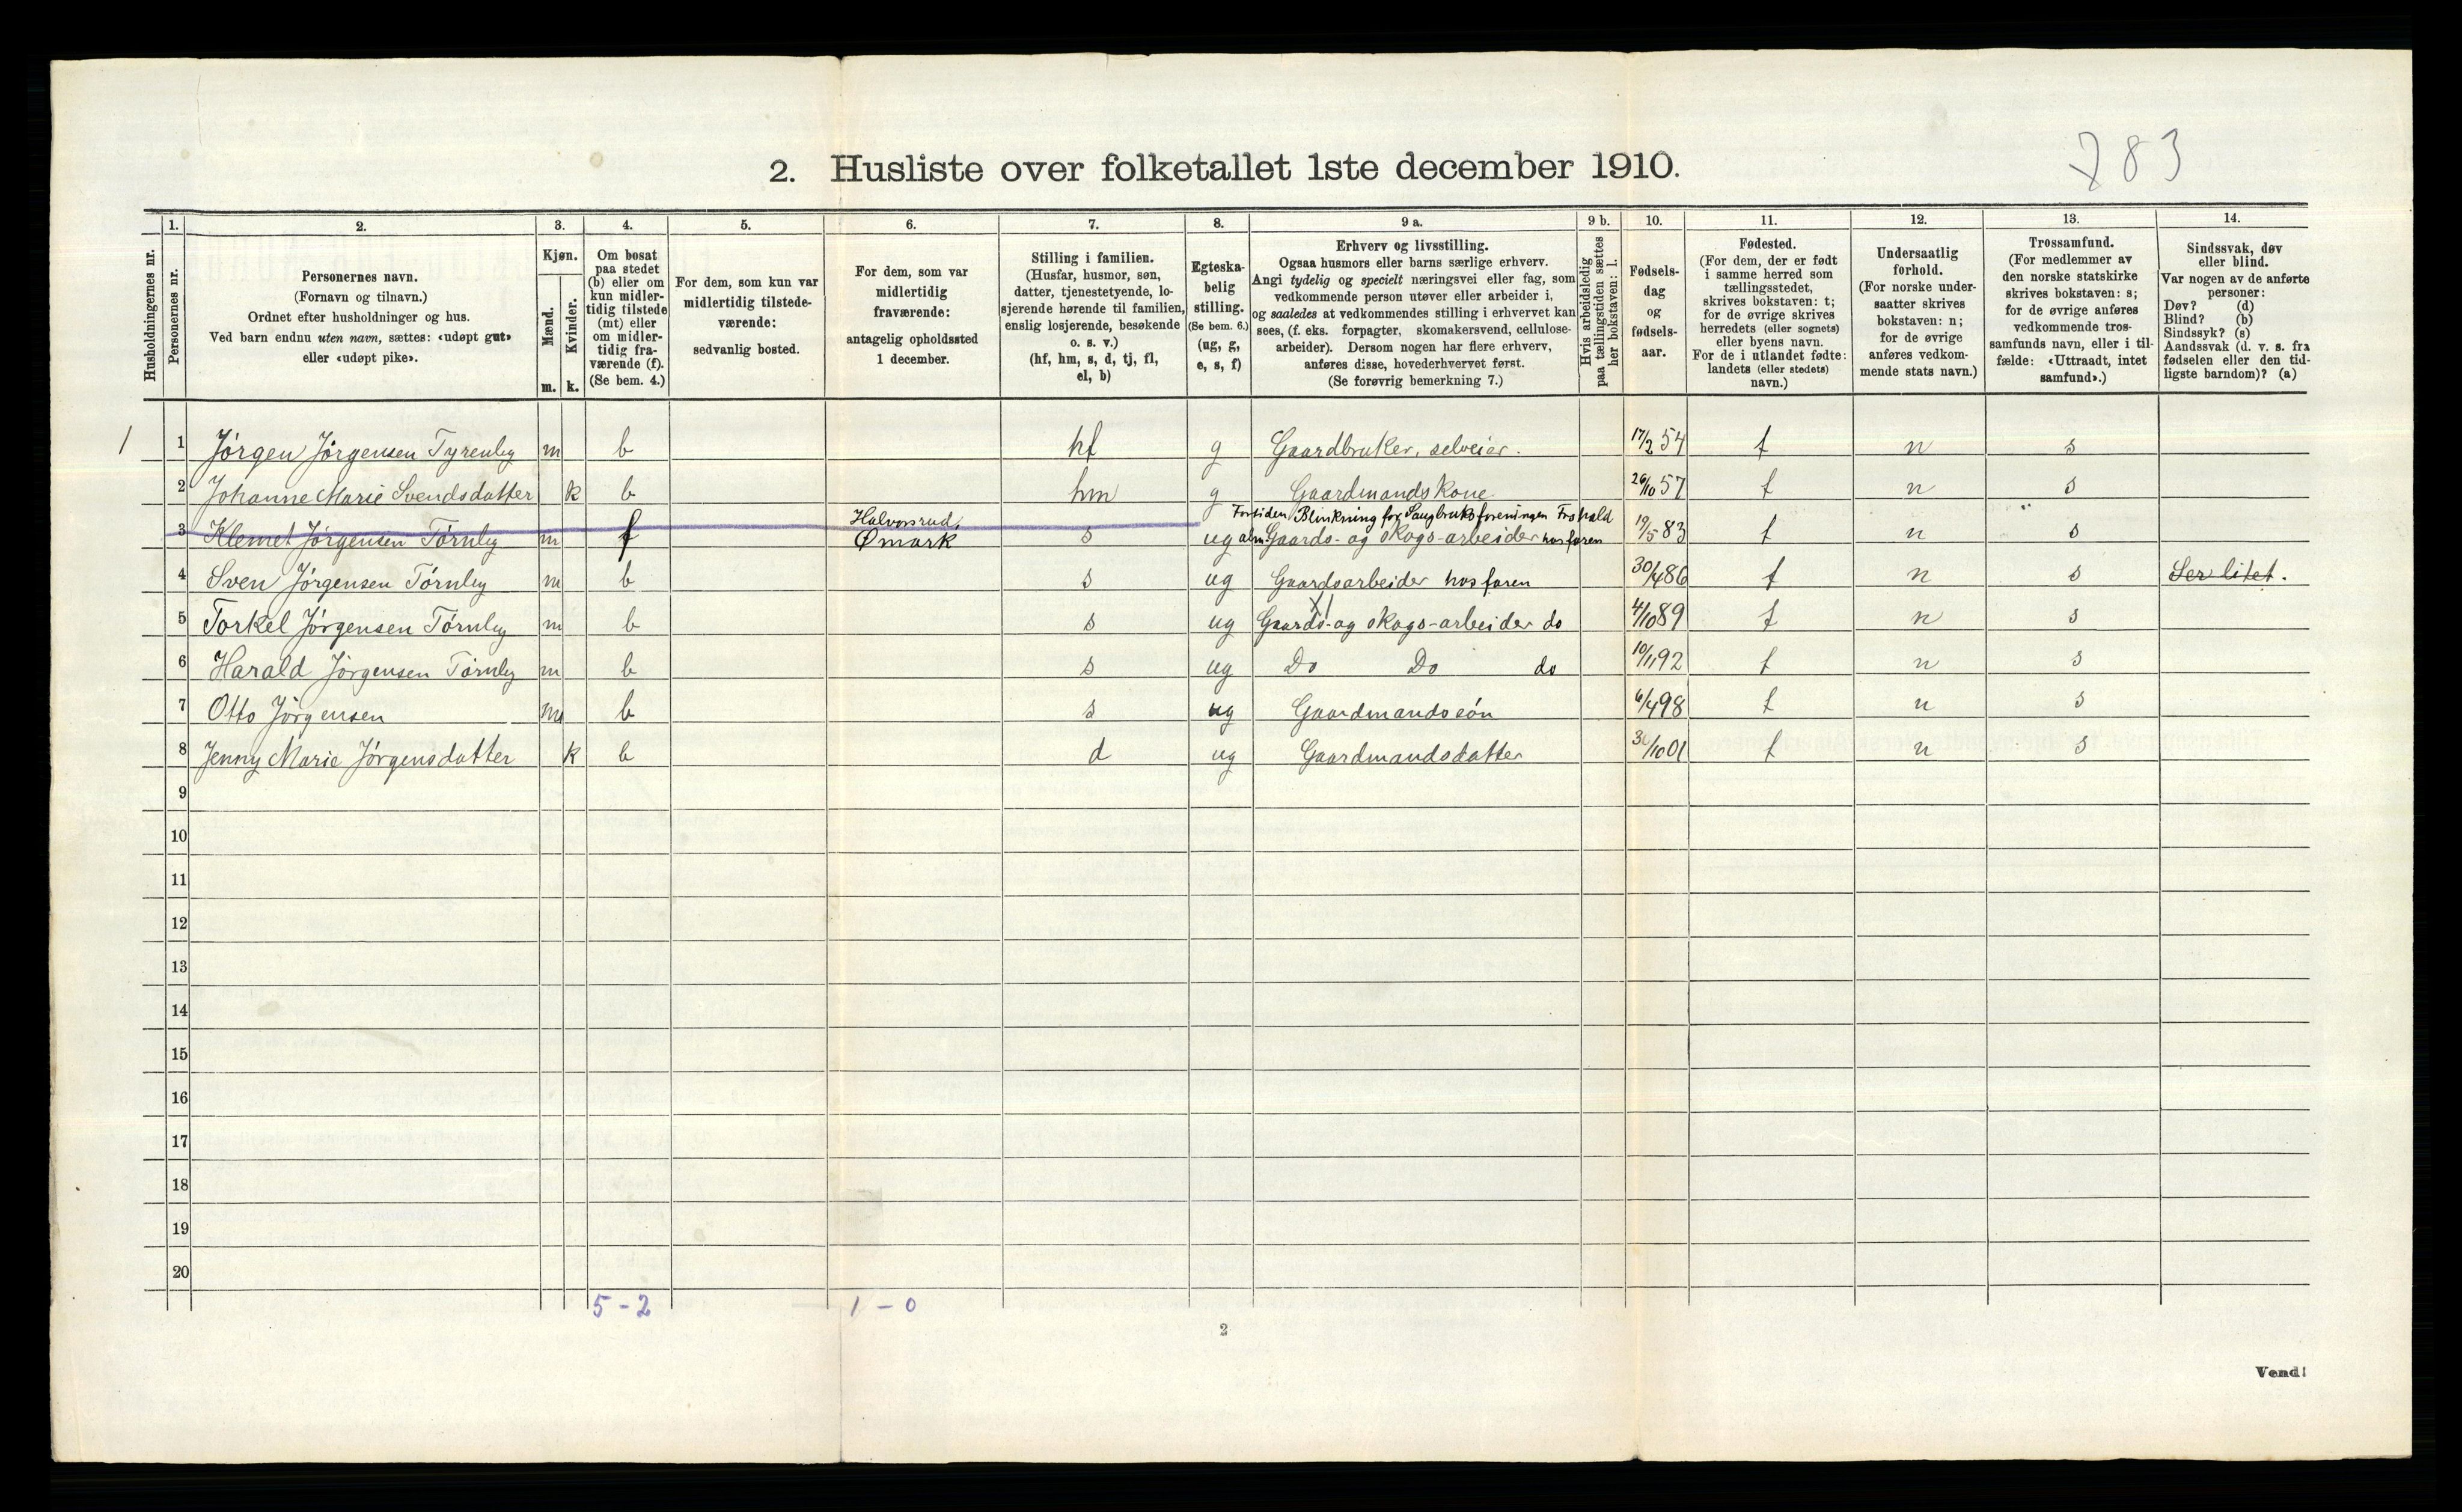 783
2. Husliste over folketallet 1ste december 1910.
Husholdningernes nr.
1.
Personernes nr.
2.
Personernes navn.
(Fornavn og tilnavn.)
Ordnet efter husholdninger og hus.
Ved barn endnu uten navn, sættes: «udøpt gut»
eller «udøpt pike».
3.
Kjøn.
Mænd.
Kvinder.
m.
k.
4.
Om bosat
paa stedet
(b) eller om
kun midler-
tidig tilstede
(mt) eller
om midler-
tidig fra-
værende (f).
(Se bem. 4.)
5.
For dem, som kun var
midlertidig tilstede-
værende:
sedvanlig bosted.
6.
For dem, som var
midlertidig
fraværende:
antagelig opholdssted
1 december.
7.
Stilling i familien.
(Husfar, husmor, søn,
datter, tjenestetyende, lo-
sjerende hørende til familien,
enslig losjerende, besøkende
o. s. v.)
(hf, hm, s, d, tj, fl,
el, b)
8.
Egteska-
belig
stilling.
(Se bem. 6.)
(ug, g,
e, s, f)
9 a.
Erhverv og livsstilling.
Ogsaa husmors eller barns særlige erhverv.
Angi tydelig og specielt næringsvei eller fag, som
vedkommende person utøver eller arbeider i,
og saaledes at vedkommendes stilling i erhvervet kan
sees, (f. eks. forpagter, skomakersvend, cellulose-
arbeider). Dersom nogen har flere erhverv,
anføres disse, hovederhvervet først.
(Se forøvrig bemerkning 7.)
9 b.
Hvis arbeidsledig
paa tællingstiden sættes
her bokstaven: l.
10.
Fødsels-
dag
og
fødsels-
aar.
11.
Fødested.
(For dem, der er født
i samme herred som
tællingsstedet,
skrives bokstaven: t;
for de øvrige skrives
herredets (eller sognets)
eller byens navn.
For de i utlandet fødte:
landets (eller stedets)
navn.)
12.
Undersaatlig
forhold.
(For norske under-
saatter skrives
bokstaven: n;
for de øvrige
anføres vedkom-
mende stats navn.)
13.
Trossamfund.
(For medlemmer av
den norske statskirke
skrives bokstaven: s;
for de øvrige anføres
vedkommende tros-
samfunds navn, eller i til-
fælde: «Uttraadt, intet
samfund».)
14.
Sindssvak, døv
eller blind.
Var nogen av de anførte
personer:
Døv? (d)
Blind? (b)
Sindssyk? (s)
Aandssvak (d. v. s. fra
fødselen eller den tid-
ligste barndom)? (a)
1 1 Jørgen Jørgensen Tyrenby m b hf g Gaardbruker, selveier. 17/2 54 t n s
2 Johanne Marie Svendsdatter k b hm g Gaardmandskone 26/10 57 t n s
Halvorsrud, Fortiden Blinkning for Saugbruksforeningen
3 Klemet Jørgensen Törnby m f Ømark s ug alm. Gaards- og skogs-arbeider hos faren 19/5 83 t n s
4 Sven Jørgensen Törnby m b s ug Gaardsarbeider hos faren 30/4 86 t n s Ser litet.
5 Torkel Jørgensen Törnby m b s ug Gaards- og skogs-arbeider do 4/10 89 t n s
6 Harald Jørgensen Törnby m b s ug Do Do do 10/11 92 t n s
7 Otto Jørgensen m b s ug Gaardmandssön 6/4 98 t n s
8 Jenny Marie Jørgensdatter k b d ug Gaardmandsdatter /10 01 t n s
9
10
11
12
13
14
15
16
17
18
19
20
5 - 2 1 - 0
2
Vend!